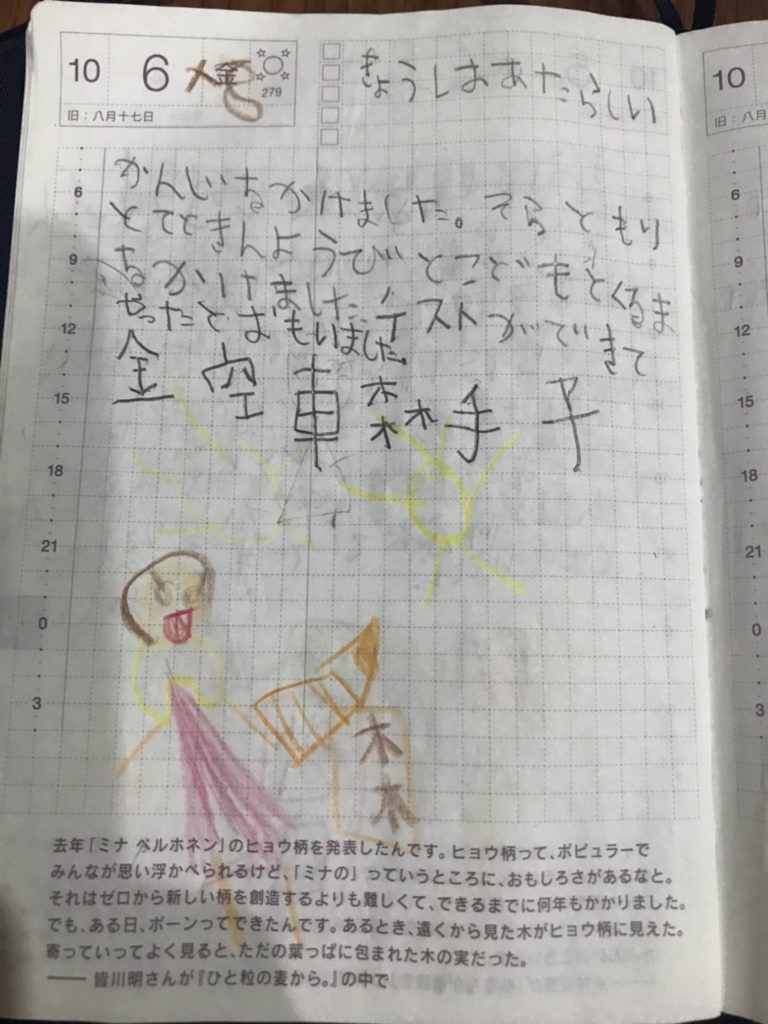 10 6 金
279
旧：八月十七日
きょうしはあたらしい
かんじいちかけました。そらともり
とてときんようびとこどもとくるま
ちかいけました、テストができて
やったとおもいました。
金 空 車 森 手 子
6
9
12
15
18
21
0
3
木
木
去年「ミナ ペルホネン」のヒョウ柄を発表したんです。ヒョウ柄って、ポピュラーで
みんなが思い浮かべられるけど、「ミナの」っていうところに、おもしろさがあるなと。
それはゼロから新しい柄を創造するよりも難しくて、できるまでに何年もかかりました。
でも、ある日、ポーンってできたんです。あるとき、遠くから見た木がヒョウ柄に見えた。
寄っていってよく見ると、ただの葉っぱに包まれた木の実だった。
―― 皆川明さんが『ひと粒の麦から。』の中で
10
旧：八月
6
9
12
15
18
21
0
3